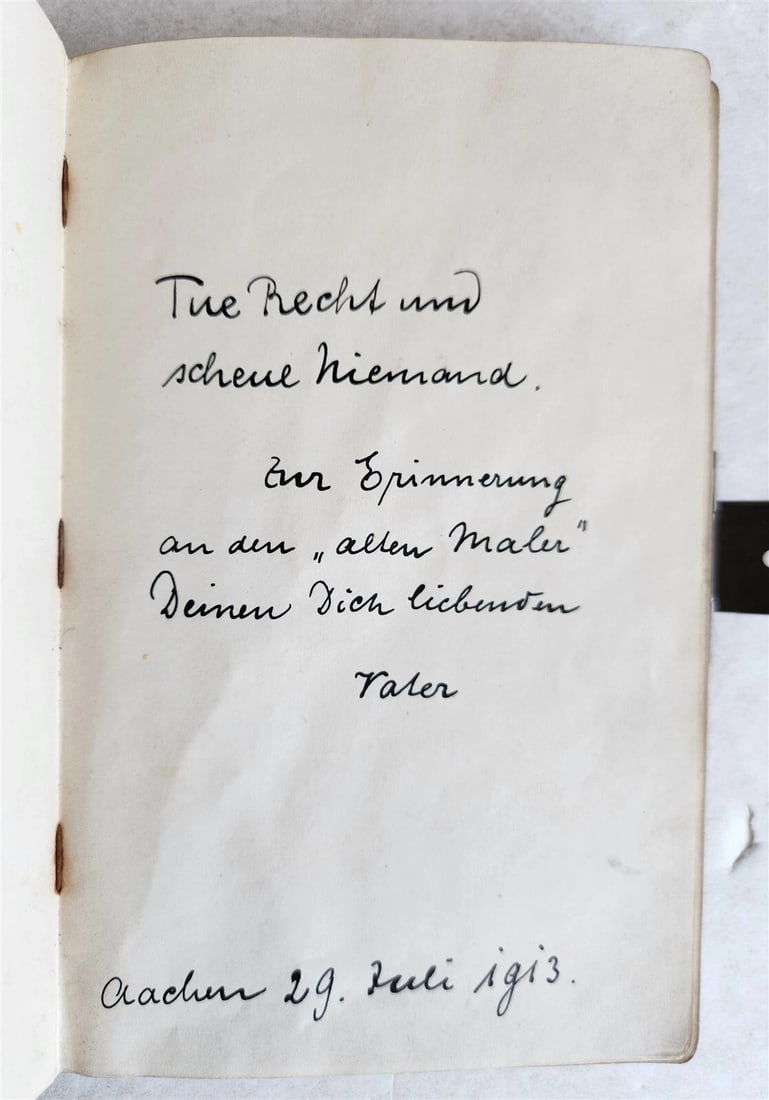 Tue Recht und
scheue Niemand.
Zur Erinnerung
an den „alten Maler"
Deinen Dich liebenden
Vater
Aachen 29. Juli 1913.